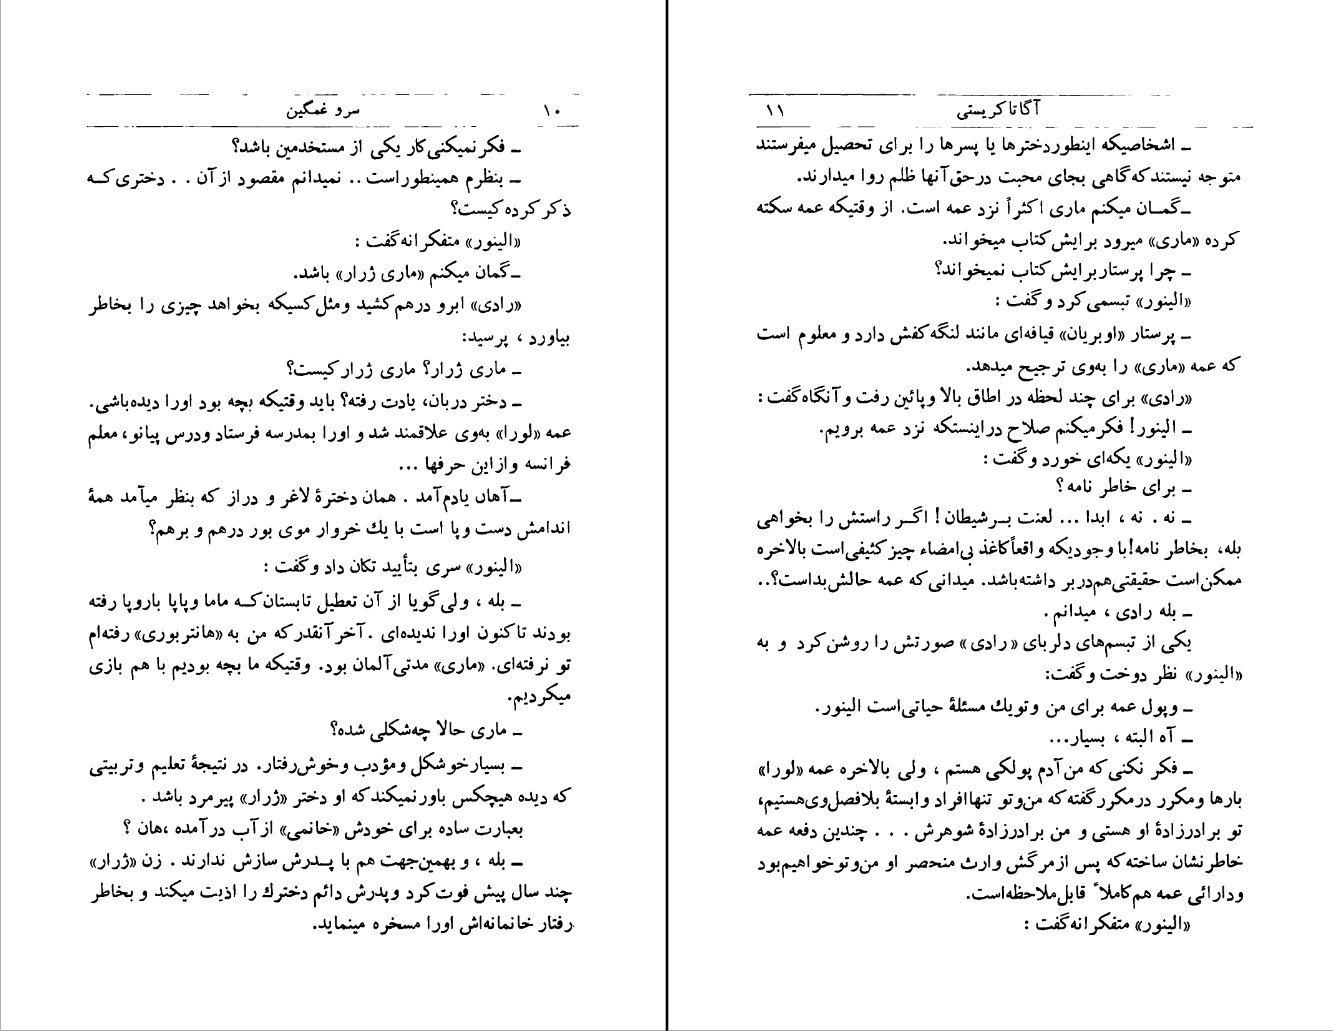 ۱۰ سرو غمگین
ـ فکر نمیکنی کار یکی از مستخدمین باشد؟
ـ بنظرم همینطور است .. نمیدانم مقصود از آن . . دختری که
ذکر کرده کیست؟
«الینور» متفکرانه گفت :
ـ گمان میکنم «ماری ژرار» باشد.
«رادی» ابرو درهم کشید ومثل کسیکه بخواهد چیزی را بخاطر
بیاورد ، پرسید:
ـ ماری ژرار؟ ماری ژرار کیست؟
ـ دختر دربان، یادت رفته؟ باید وقتیکه بچه بود اورا دیده‌باشی.
عمه «لورا» به‌وی علاقمند شد و اورا بمدرسه فرستاد ودرس پیانو، معلم
فرانسه وازاین حرفها ...
ـ آهان یادم‌آمد . همان دخترهٔ لاغر و دراز که بنظر میآمد همهٔ
اندامش دست وپا است با یك خروار موی بور درهم و برهم؟
«الینور» سری بتأیید تکان داد وگفت :
ـ بله ، ولی گویا از آن تعطیل تابستان کـه ماما وپاپا باروپا رفته
بودند تاکنون اورا ندیده‌ای . آخر آنقدر که من به «هانتربوری» رفته‌ام
تو نرفته‌ای. «ماری» مدتی آلمان بود. وقتیکه ما بچه بودیم با هم بازی
میکردیم.
ـ ماری حالا چه‌شکلی شده؟
ـ بسیار خوشکل ومؤدب وخوش‌رفتار. در نتیجهٔ تعلیم وتربیتی
که دیده هیچکس باور نمیکند که او دختر «ژرار» پیرمرد باشد .
بعبارت ساده برای خودش «خانمی» از آب درآمده ،هان ؟
ـ بله ، و بهمین‌جهت هم با پـدرش سازش ندارند . زن «ژرار»
چند سال پیش فوت کرد وپدرش دائم دخترك را اذیت میکند و بخاطر
رفتار خانمانه‌اش اورا مسخره مینماید.
آگاتا کریستی ۱۱
ـ اشخاصیکه اینطور دخترها یا پسرها را برای تحصیل میفرستند
متوجه نیستند که گاهی بجای محبت درحق آنها ظلم روا میدارند.
ـ گمـان میکنم ماری اکثراً نزد عمه است. از وقتیکه عمه سکته
کرده «ماری» میرود برایش کتاب میخواند.
ـ چرا پرستار برایش کتاب نمیخواند؟
«الینور» تبسمی کرد وگفت :
ـ پرستار «اوبریان» قیافه‌ای مانند لنگه کفش دارد و معلوم است
که عمه «ماری» را به‌وی ترجیح میدهد.
«رادی» برای چند لحظه در اطاق بالا وپائین رفت وآنگاه گفت :
ـ الینور! فکر میکنم صلاح دراینستکه نزد عمه برویم.
«الینور» یکه‌ای خورد وگفت :
ـ برای خاطر نامه ؟
ـ نه . نه ، ابدا ... لعنت بـرشیطان ! اگـر راستش را بخواهی
بله، بخاطر نامه! با وجودیکه واقعاً کاغذ بی‌امضاء چیز کثیفی است بالاخره
ممکن است حقیقتی هم‌دربر داشته‌باشد. میدانی که عمه حالش‌بداست؟..
ـ بله رادی ، میدانم .
یکی از تبسم‌های دلربای «رادی» صورتش را روشن کرد و به
«الینور» نظر دوخت وگفت:
ـ وپول عمه برای من وتویك مسئلهٔ حیاتی‌است الینور.
ـ آه البته ، بسیار...
ـ فکر نکنی که من‌آدم پولکی هستم ، ولی بالاخره عمه «لورا»
بارها ومکرر درمکرر گفته که من‌وتو تنها افراد وابستهٔ بلافصل‌وی‌هستیم،
تو برادرزادهٔ او هستی و من برادرزادهٔ شوهرش . . . چندین دفعه عمه
خاطرنشان ساخته که پس ازمرگش وارث منحصر او من‌وتوخواهیم‌بود
ودارائی عمه هم کاملاً قابل‌ملاحظه‌است.
«الینور» متفکرانه گفت :